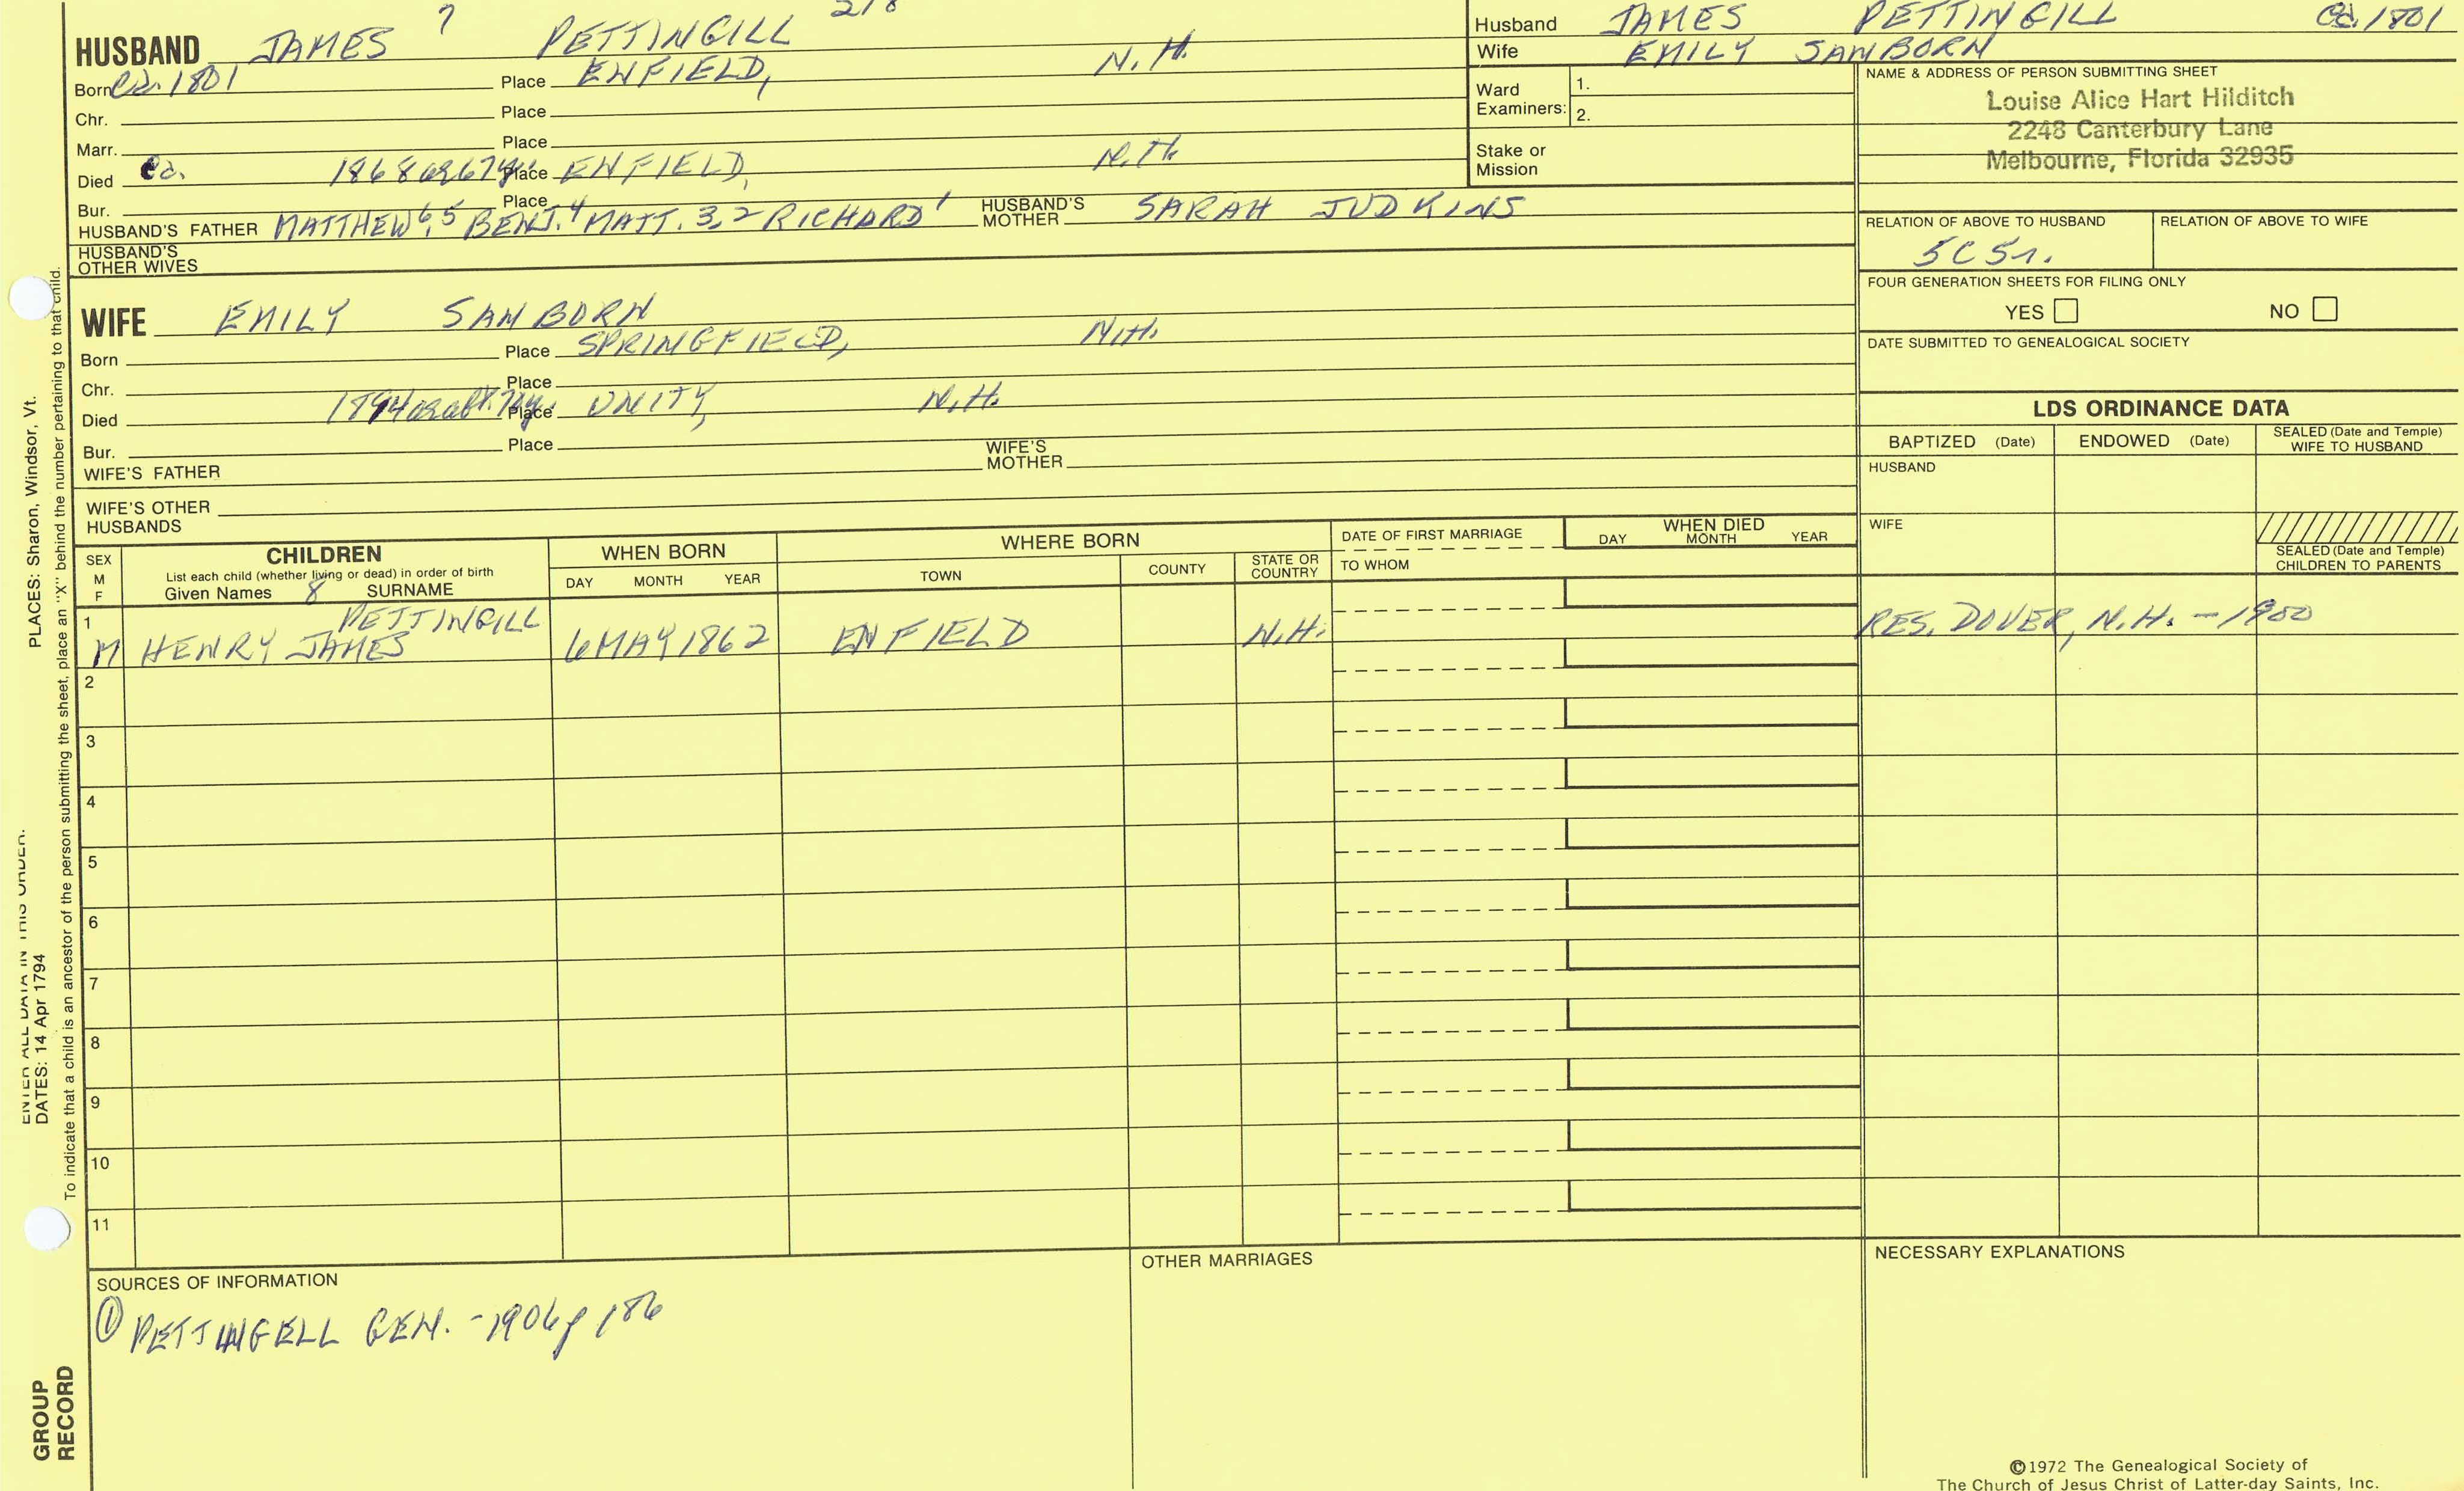 HUSBAND JAMES 7 PETTINGILL
Born Ca. 1801 Place ENFIELD, N.H.
Chr. Place
Marr. Place
Died Ca. 1868 ae 67 yrs Place ENFIELD, N.H.
Bur. Place
HUSBAND'S FATHER MATTHEW 6, 5 BENJ. 4 MATT. 3, 2 RICHARD 1 HUSBAND'S MOTHER SARAH JUDKINS
HUSBAND'S OTHER WIVES
WIFE EMILY SANBORN
Born Place SPRINGFIELD, N.H.
Chr. Place
Died 1894 ae abt. Place UNITY, N.H.
Bur. Place
WIFE'S FATHER WIFE'S MOTHER
WIFE'S OTHER HUSBANDS
Husband JAMES PETTINGILL Ca. 1801
Wife EMILY SANBORN
Ward Examiners: 1.
2.
Stake or Mission
NAME & ADDRESS OF PERSON SUBMITTING SHEET
Louise Alice Hart Hilditch
2248 Canterbury Lane
Melbourne, Florida 32935
RELATION OF ABOVE TO HUSBAND RELATION OF ABOVE TO WIFE
5C5r.
FOUR GENERATION SHEETS FOR FILING ONLY
YES NO
DATE SUBMITTED TO GENEALOGICAL SOCIETY
LDS ORDINANCE DATA
BAPTIZED (Date) ENDOWED (Date) SEALED (Date and Temple) WIFE TO HUSBAND
HUSBAND
WIFE
SEALED (Date and Temple) CHILDREN TO PARENTS
SEX M F CHILDREN WHEN BORN WHERE BORN DATE OF FIRST MARRIAGE WHEN DIED
List each child (whether living or dead) in order of birth DAY MONTH YEAR TOWN COUNTY STATE OR COUNTRY TO WHOM DAY MONTH YEAR
Given Names 8 SURNAME
1 PETTINGILL
M HENRY JAMES 6 MAY 1862 ENFIELD N.H. RES. DOVER, N.H. - 1900
2
3
4
5
6
7
8
9
10
11
SOURCES OF INFORMATION OTHER MARRIAGES NECESSARY EXPLANATIONS
① PETTINGELL GEN. - 1906 p 186
©1972 The Genealogical Society of
The Church of Jesus Christ of Latter-day Saints, Inc.
ENTER ALL DATA IN THIS ORDER.
DATES: 14 Apr 1794 PLACES: Sharon, Windsor, Vt.
To indicate that a child is an ancestor of the person submitting the sheet, place an "X" behind the number pertaining to that child.
GROUP
RECORD